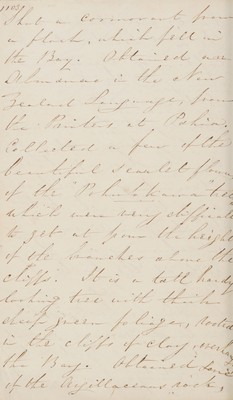 Shot a cormorant from
a flock, which fell in
the Bay. Obtained an
Almanac in the New
Zealand Language, from
the Printers at Pahia.
Collected a few of the
beautiful scarlet flowers
of the Pohutukawa tree
which were very difficult
to get at from the height
of the branches above the
cliffs. It is a tall handsome
looking tree with thick
deep green foliage, rooted
in the cliffs of clay, overhang
the Bay. Obtained
of the Argillaceous rock,